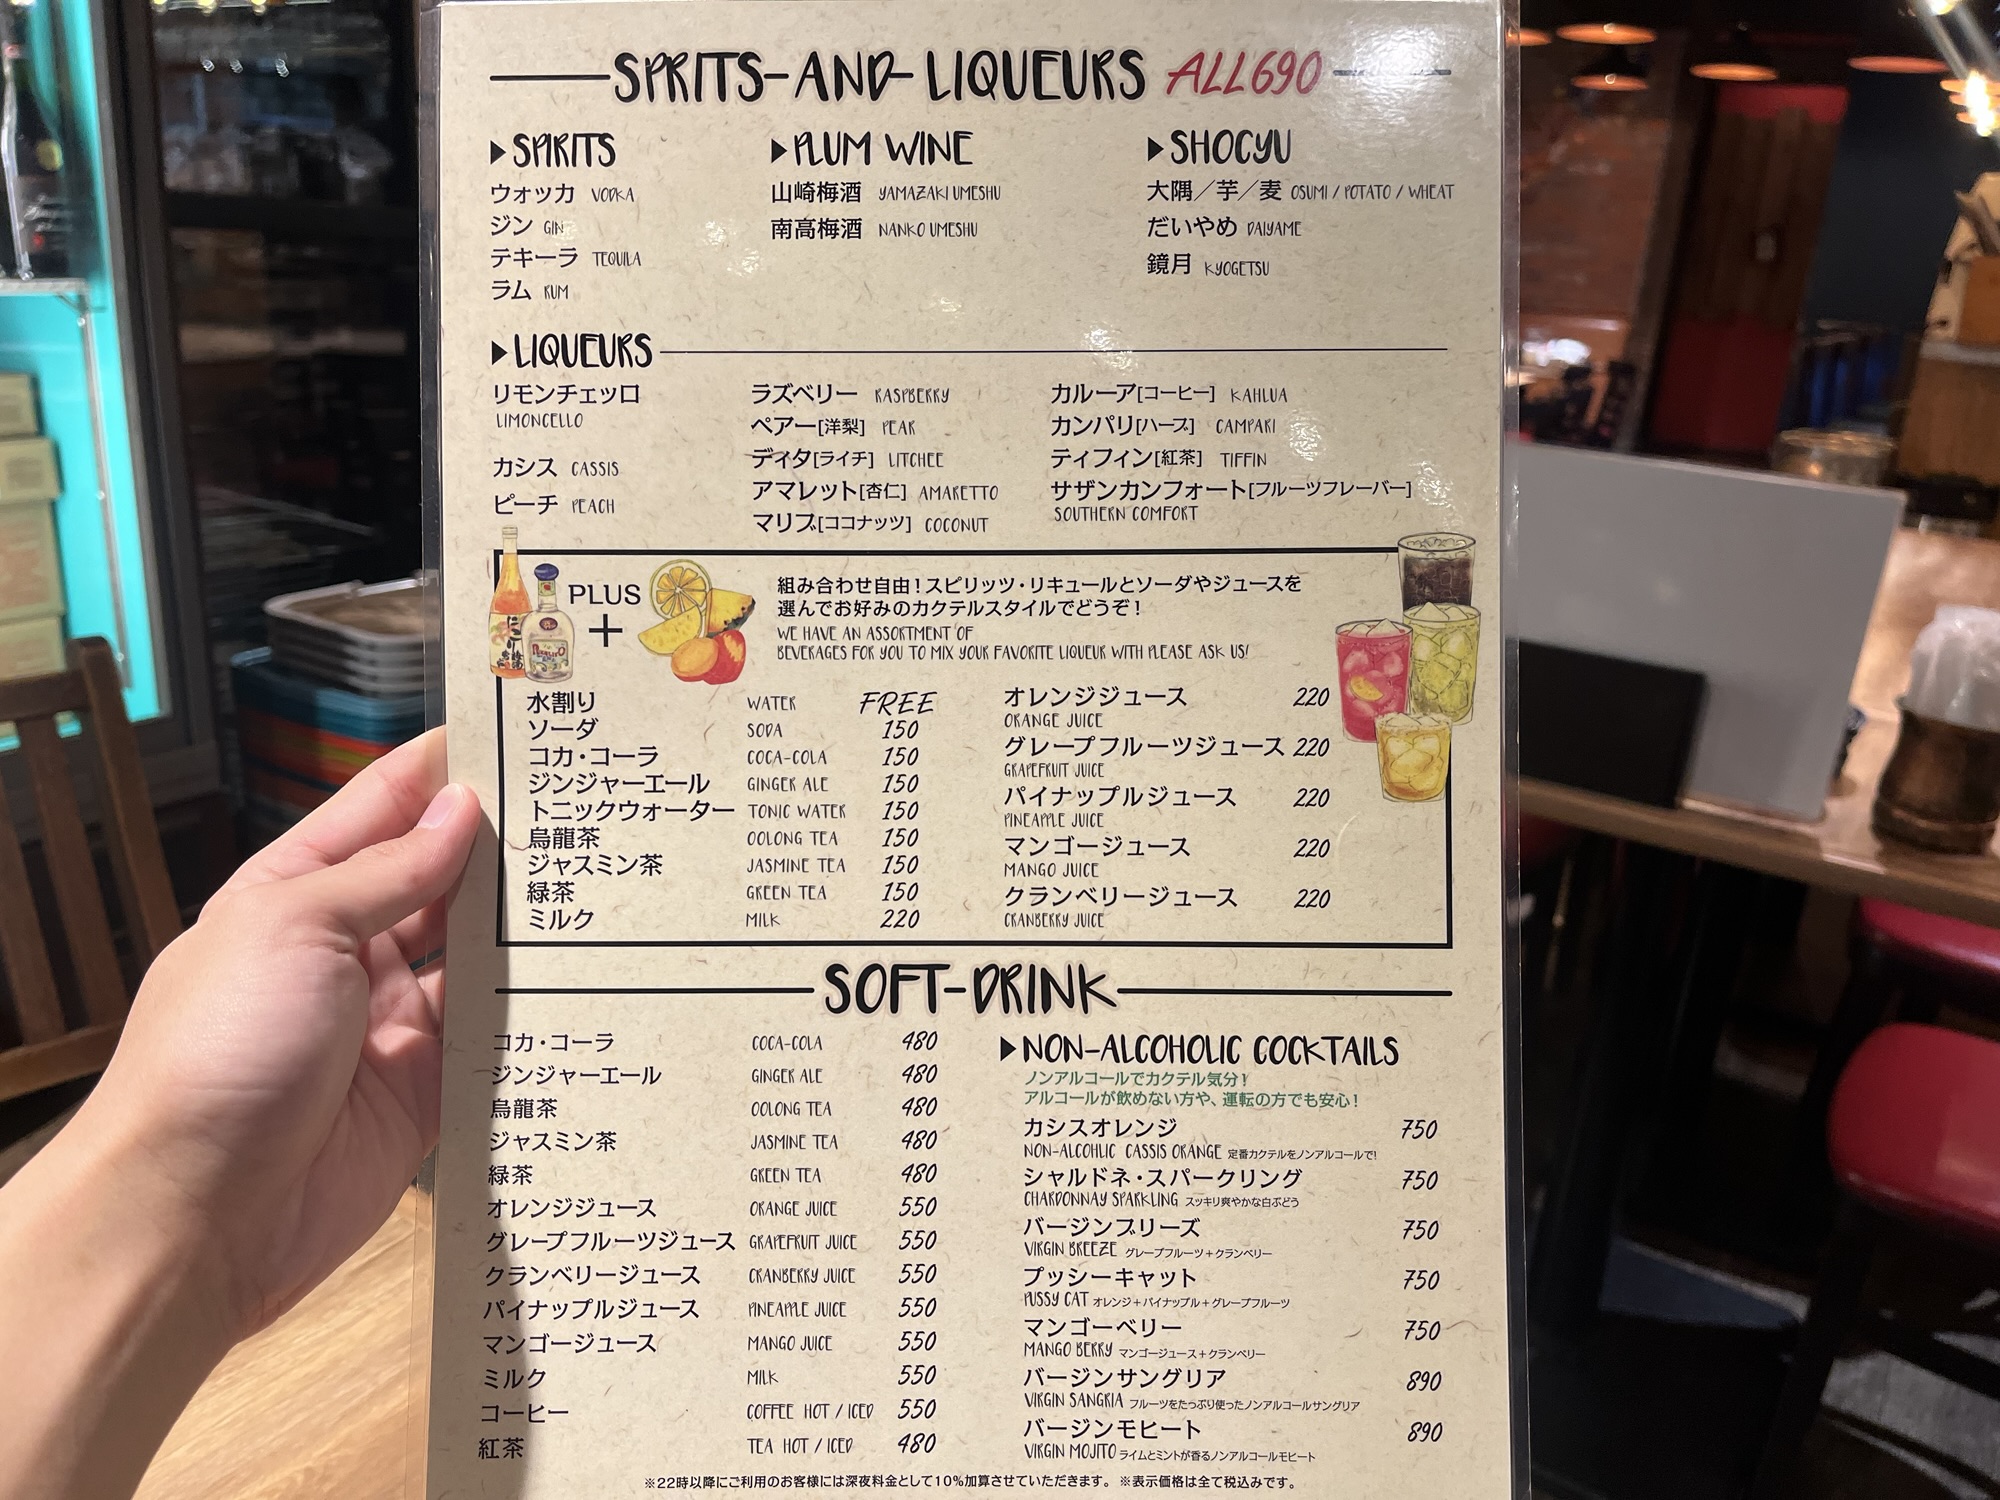 SPRITS-AND-LIQUEURS ALL690
▶SPIRITS
ウォッカ VODKA
ジン GIN
テキーラ TEQUILA
ラム RUM
▶PLUM WINE
山崎梅酒 YAMAZAKI UMESHU
南高梅酒 NANKO UMESHU
▶SHOCYU
大隅／芋／麦 OSUMI / POTATO / WHEAT
だいやめ DAIYAME
鏡月 KYOGETSU
▶LIQUEURS
リモンチェッロ
LIMONCELLO
カシス CASSIS
ピーチ PEACH
ラズベリー RASPBERRY
ペアー[洋梨] PEAR
ディタ[ライチ] LITCHEE
アマレット[杏仁] AMARETTO
マリブ[ココナッツ] COCONUT
カルーア[コーヒー] KAHLUA
カンパリ[ハーブ] CAMPARI
ティフィン[紅茶] TIFFIN
サザンカンフォート[フルーツフレーバー]
SOUTHERN COMFORT
PLUS
+
組み合わせ自由！スピリッツ・リキュールとソーダやジュースを
選んでお好みのカクテルスタイルでどうぞ！
WE HAVE AN ASSORTMENT OF
BEVERAGES FOR YOU TO MIX YOUR FAVORITE LIQUEUR WITH PLEASE ASK US!
水割り WATER FREE
ソーダ SODA 150
コカ・コーラ COCA-COLA 150
ジンジャーエール GINGER ALE 150
トニックウォーター TONIC WATER 150
烏龍茶 OOLONG TEA 150
ジャスミン茶 JASMINE TEA 150
緑茶 GREEN TEA 150
ミルク MILK 220
オレンジジュース 220
ORANGE JUICE
グレープフルーツジュース 220
GRAPEFRUIT JUICE
パイナップルジュース 220
PINEAPPLE JUICE
マンゴージュース 220
MANGO JUICE
クランベリージュース 220
CRANBERRY JUICE
SOFT-DRINK
コカ・コーラ COCA-COLA 480
ジンジャーエール GINGER ALE 480
烏龍茶 OOLONG TEA 480
ジャスミン茶 JASMINE TEA 480
緑茶 GREEN TEA 480
オレンジジュース ORANGE JUICE 550
グレープフルーツジュース GRAPEFRUIT JUICE 550
クランベリージュース CRANBERRY JUICE 550
パイナップルジュース PINEAPPLE JUICE 550
マンゴージュース MANGO JUICE 550
ミルク MILK 550
コーヒー COFFEE HOT / ICED 550
紅茶 TEA HOT / ICED 480
▶NON-ALCOHOLIC COCKTAILS
ノンアルコールでカクテル気分！
アルコールが飲めない方や、運転の方でも安心！
カシスオレンジ 750
NON-ALCOHLIC CASSIS ORANGE 定番カクテルをノンアルコールで!
シャルドネ・スパークリング 750
CHARDONNAY SPARKLING スッキリ爽やかな白ぶどう
バージンブリーズ 750
VIRGIN BREEZE グレープフルーツ+クランベリー
プッシーキャット 750
PUSSY CAT オレンジ+パイナップル+グレープフルーツ
マンゴーベリー 750
MANGO BERRY マンゴージュース+クランベリー
バージンサングリア 890
VIRGIN SANGRIA フルーツをたっぷり使ったノンアルコールサングリア
バージンモヒート 890
VIRGIN MOJITO ライムとミントが香るノンアルコールモヒート
※22時以降にご利用のお客様には深夜料金として10%加算させていただきます。 ※表示価格は全て税込みです。